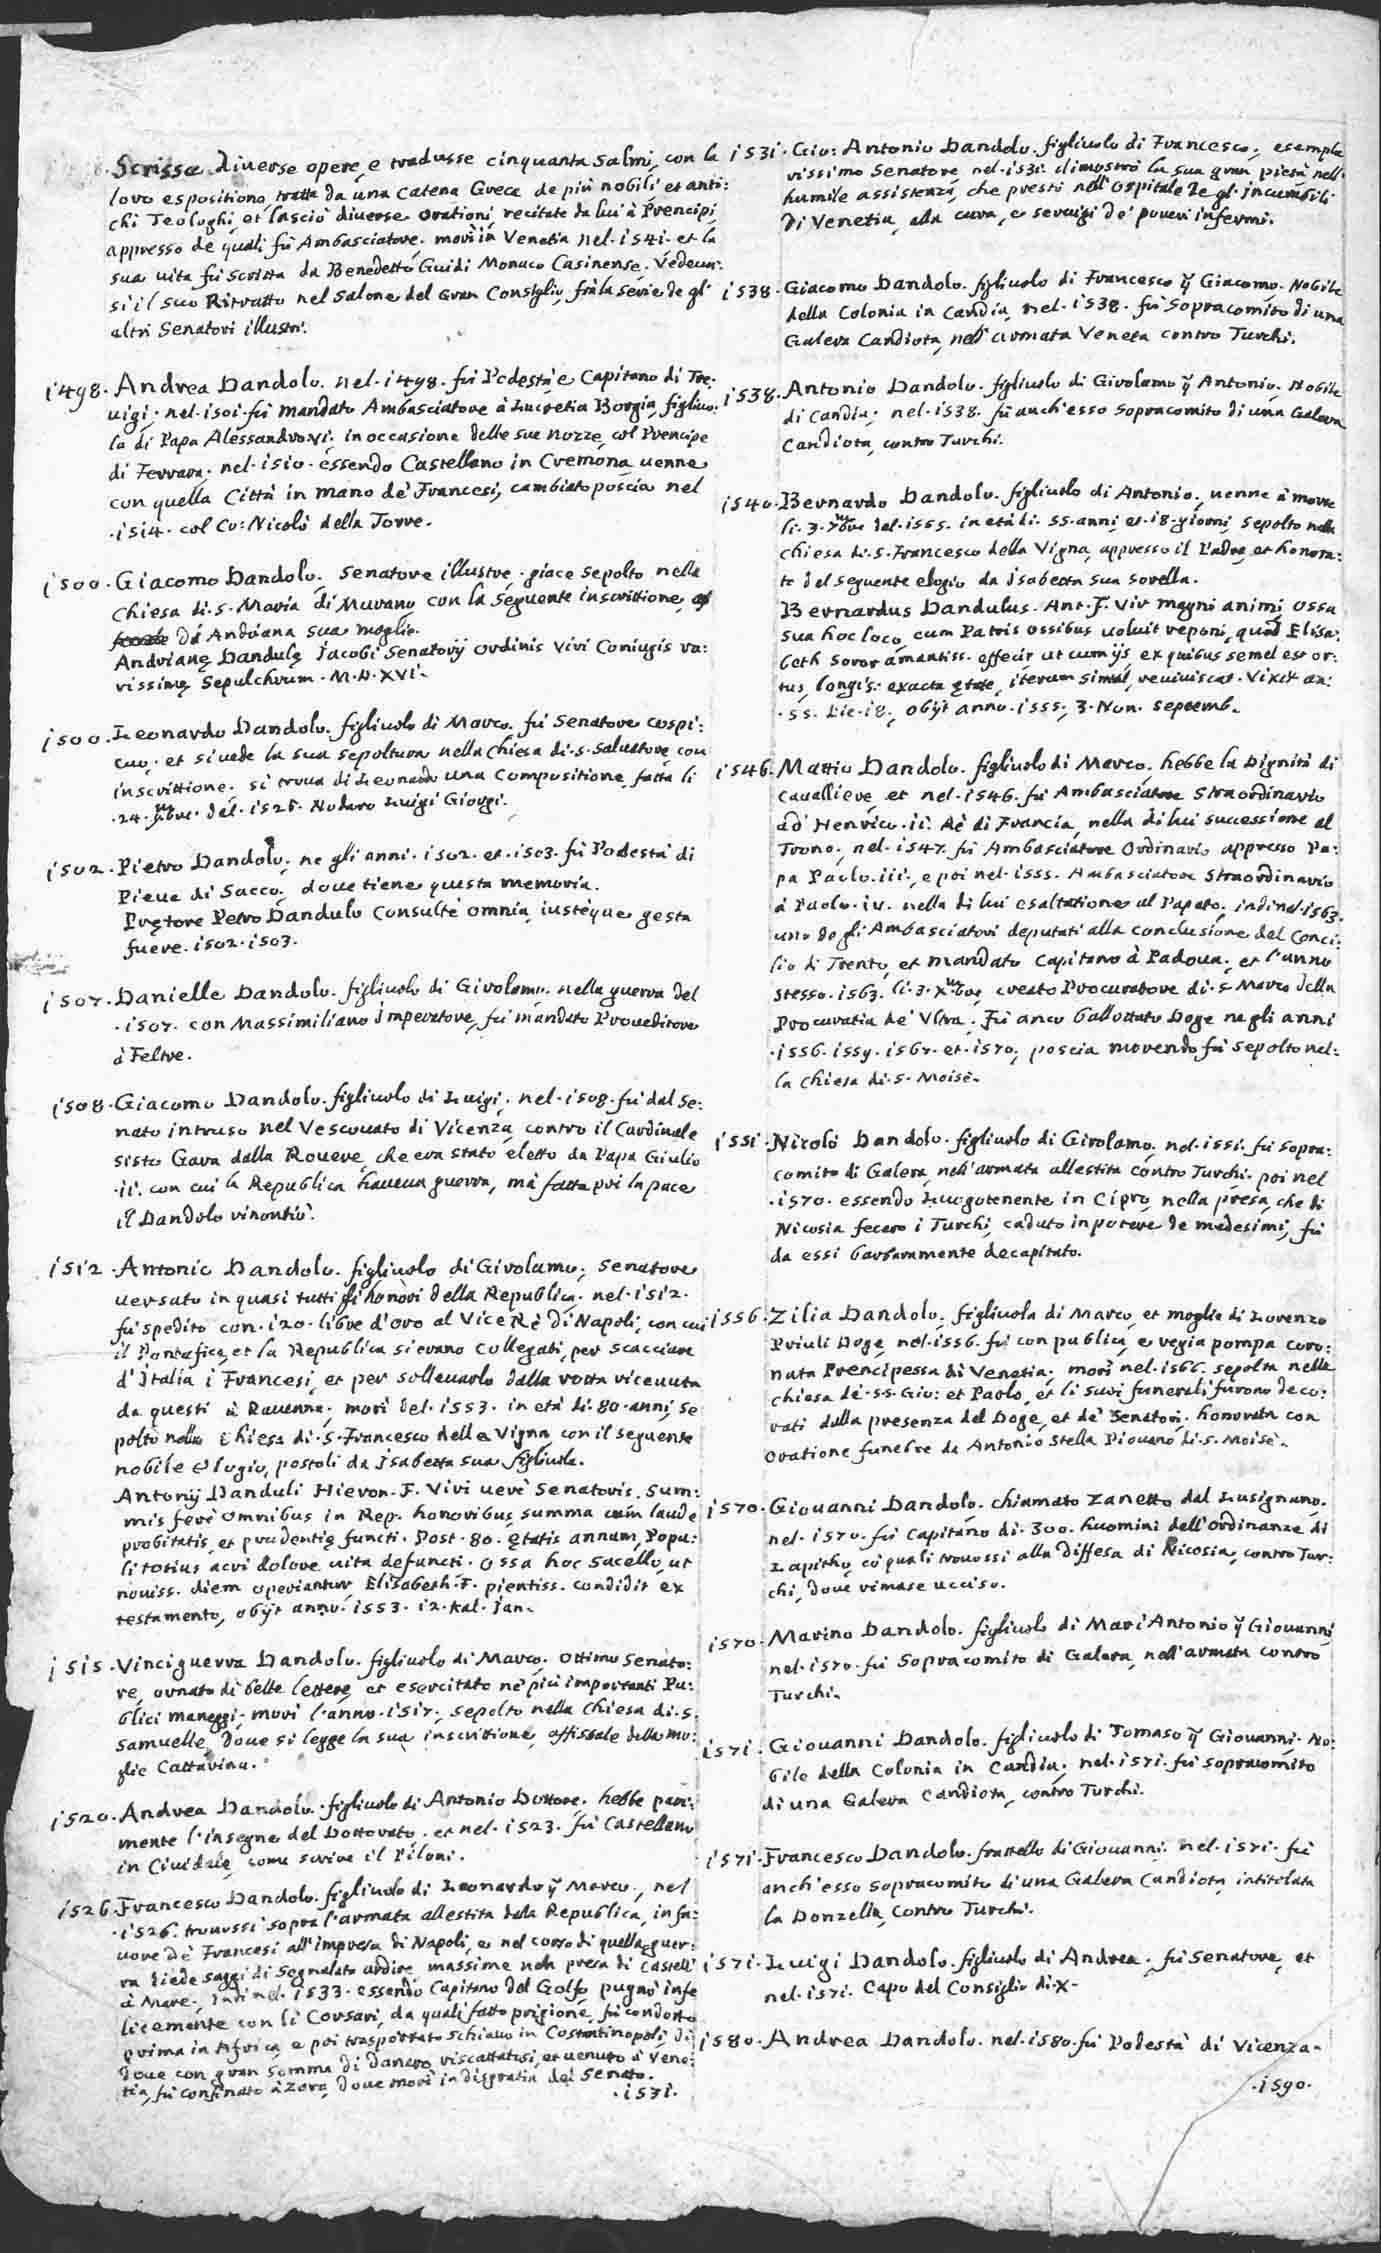 Scrisse diverse opere, e tradusse cinquanta Salmi, con la
loro espositione tratta da una Catena Greca de piu nobili et anti:
chi Teologhi, et lasciò diverse orationi, recitate da lui à Prencipi,
appresso de quali fù Ambasciatore. morì in Venetia nel. 1541. et la
sua uita fù scritta da Benedetto Guidi Monaco Casinense. Vedeua:
si il suo Ritratto nel Salone del Gran Consiglio, frà la serie de gl'
altri Senatori illustri.
1498. Andrea Dandolo. nel. 1498. fù Podestà e Capitano di Tre:
uigi. nel. 1501. fù mandato Ambasciatore à Lucretia Borgia, figliuo:
la di Papa Alessandro VI. in occasione delle sue nozze, col Prencipe
di Ferrara. nel. 1510. essendo Castellano in Cremona, uenne
con quella Città in mano de' Francesi, cambiato poscia nel
.1514. col Co: Nicolò della Torre.
1500. Giacomo Dandolo, Senatore illustre. giace sepolto nella
Chiesa di. S. Maria di Murano con la seguente inscrittione,
da Andriana sua moglie.
Andrianę Dandulę Jacobi Senatorij ordinis Viri Coniugis ra:
rissimę Sepulchrum. M. D. XVI.
1500. Leonardo Dandolo. figliuolo di Marco. fù Senatore cospi:
cuo, et si uede la sua sepoltura nella chiesa di. S. Saluatore, con
inscrittione. si troua di Leonardo una Compositione, fatta li
.24. del. 1525. Nodaro Luigi Giorgi.
1502. Pietro Dandolo, ne gli anni. 1502. et. 1503. fù Podestà di
Pieue di Sacco, doue tiene questa memoria.
Prętore Petro Dandulo Consultè omnia, iustèque gesta
fuere. 1502. 1503.
1507. Danielle Dandolo. figliuolo di Girolamo. nella guerra del
.1507. con Massimiliano Imperatore, fù mandato Proueditore
à Feltre.
1508. Giacomo Dandolo. figliuolo di Luigi. nel. 1508. fù dal Se:
nato intruso nel Vescouato di Vicenza, contro il Cardinale
Sisto Gara dalla Rouere, che era stato eletto da Papa Giulio
.ii. con cui la Republica haueua guerra, mà fatta poi la pace
il Dandolo rinontiò.
1512. Antonio Dandolo. figliuolo di Girolamo, Senatore
uersato in quasi tutti gli honori della Republica. nel. 1512.
fù spedito con. 120. libre d'oro al Vice Rè di Napoli, con cui
il Pontefice, et la Republica si erano collegati, per scacciare
d'Italia i Francesi, et per solleuarlo dalla rotta riceuuta
da questi à Rauenna. morì del. 1553. in età di. 80. anni, se
polto nella Chiesa di. S. Francesco della Vigna con il seguente
nobile elogio, postoli da Isabetta sua figliuola.
Antonij Danduli Hieron. F. Viri uerè Senatoris. Sum:
mis ferè omnibus in Rep. honoribus summa cum laude
probitatis, et prudentię functi. Post. 80. ętatis annum, Popu:
li totius acri dolore uita defuncti. Ossa hoc Sacello, ut
nouiss. diem operiantur, Elisabeth. F. pientiss. condidit ex
testamento, obijt anno. 1553. 12. Kal. Jan.
1515. Vinciguerra Dandolo. figliuolo di Marco. Ottimo Senato:
re, ornato di belle lettere, et esercitato ne' più importanti Pu:
blici maneggi. morì l'anno. 1517. sepolto nella Chiesa di. S.
Samuelle, doue si legge la sua inscrittione, affissale della mo:
glie Cattarina.
1520. Andrea Dandolo. figliuolo di Antonio Dottore, hebbe pari:
mente l'insegne del Dottorato. et nel. 1523. fù Castellano
in Ciuidale, come scriue il Piloni.
1526. Francesco Dandolo. figliuolo di Leonardo q̃ Marco, nel
.1526. trouossi sopra l'armata allestita dela Republica, in fa:
uore de' Francesi all'impresa di Napoli, e nel corso di quella guer:
ra diede saggi di segnalato ardire, massime nela presa di Castell'
à Mare. Indi nel. 1533. essendo Capitano del Golfo, pugnò infe
licemente con li Corsari, da quali fatto prigione, fù condotto
prima in Africa, e poi trasportato schiauo in Costantinopoli, di
doue con gran somma di danaro riscattatosi, et uenuto à Vene:
tia, fù confinato à Zara, doue morì in disgratia del Senato.
.1531.
1531. Gio: Antonio Dandolo. figliuolo di Francesco, esempla
rissimo Senatore, nel. 1531. dimostrò la sua gran pietà nell'
humile assistenza, che prestò nell'Ospitale de gl'incurabili.
di Venetia, alla cura, e seruigi de' poueri infermi.
1538. Giacomo Dandolo. figliuolo di Francesco q̃ Giacomo. Nobile
della Colonia in Candia, nel. 1538. fù Sopracomito di una
Galera Candiota, nell'armata Veneta contro Turchi.
1538. Antonio Dandolo. figliuolo di Girolamo q̃ Antonio. Nobile
di Candia. nel. 1538. fù anch'esso sopracomito di una Galera
Candiota, contro Turchi.
1540. Bernardo Dandolo. figliuolo di Antonio, uenne à morte
li. 3. 7bre del. 1555. in età di. 55. anni, et. 18. giorni, sepolto nella
chiesa di. S. Francesco della Vigna, appresso il Padre, et honora:
to del seguente elogio da Isabetta sua sorella.
Bernardus Dandulus. Ant. F. Vir magni animi, ossa
sua hoc loco, cum Patris ossibus uoluit reponi, quod Elisa:
beth Soror amantiss. effecit, ut cum ijs, ex quibus semel est or:
tus, longiss: exacta ętate, iterum simul, reuiuiscat. Vixit an:
.55. Die. 18. obijt anno. 1555. 3. Non. Septemb.
1546. Mattio Dandolo. figliuolo di Marco, hebbe la Dignità di
Cauallieré, et nel. 1546. fù Ambasciatore Straordinario
ad Henrico. ii. Rè di Francia, nella di lui successione al
Trono, nel. 1547. fù Ambasciatore Ordinario appresso Pa:
pa Paolo. iii. e poi nel. 1555. Ambasciatore Straordinario
à Paolo. iv. nella di lui esaltatione al Papato, indi nel. 1563.
uno de gli Ambasciatori deputati alla conclusione del Conci:
lio di Trento, et mandato Capitano à Padoua, et l'anno
stesso. 1563. li. 3. Xbre, creato Procuratore di. S. Marco della
Procuratia de' Vltra. Fù anco ballottato Doge ne gli anni
.1556. 1559. 1567. et. 1570. poscia morendo fù sepolto nel:
la chiesa di. S. Moisè.
1551. Nicolò Dandolo. figliuolo di Girolamo, nel. 1551. fù Sopra:
comito di Galera, nell'armata allestita contro Turchi. poi nel
.1570. essendo Luogotenente in Cipro, nella presa, che di
Nicosia fecero i Turchi, caduto in potere de medesimi, fù
da essi barbaramente decapitato.
1556. Zilia Dandolo. figliuola di Marco, et moglie di Lorenzo
Priuli Doge, nel. 1556. fù con publica, e regia pompa coro:
nata Prencipessa di Venetia. morì nel. 1566. sepolta nella
chiesa de'. SS. Gio: et Paolo, et li suoi funerali furono deco:
rati dalla presenza del Doge, et de' Senatori, honorata con
oratione funebre da Antonio Stella Piouano di. S. Moisè.
1570. Giouanni Dandolo. chiamato Zanetto dal Lusignano.
nel. 1570. fù Capitano di. 300. huomini dell'ordinanze di
Lapitho, co' quali trouossi alla diffesa di Nicosia, contro Tur:
chi, doue rimase ucciso.
1570. Marino Dandolo. figliuolo di Marc'Antonio q̃ Giouanni
nel. 1570. fù Sopracomito di Galera, nell'armata contro
Turchi.
1571. Giouanni Dandolo. figliuolo di Tomaso q̃ Giouanni. No:
bile della Colonia in Candia. nel. 1571. fù sopracomito
di una Galera Candiota, contro Turchi.
1571. Francesco Dandolo. frattello di Giouanni. nel. 1571. fù
anch'esso sopracomito di una Galera Candiota, intitolata
la Donzella, contro Turchi.
1571. Luigi Dandolo. figliuolo di Andrea, fù Senatore, et
nel. 1571. Capo del Consiglio di. X.
1580. Andrea Dandolo. nel. 1580. fù Podestà di Vicenza.
.1590.